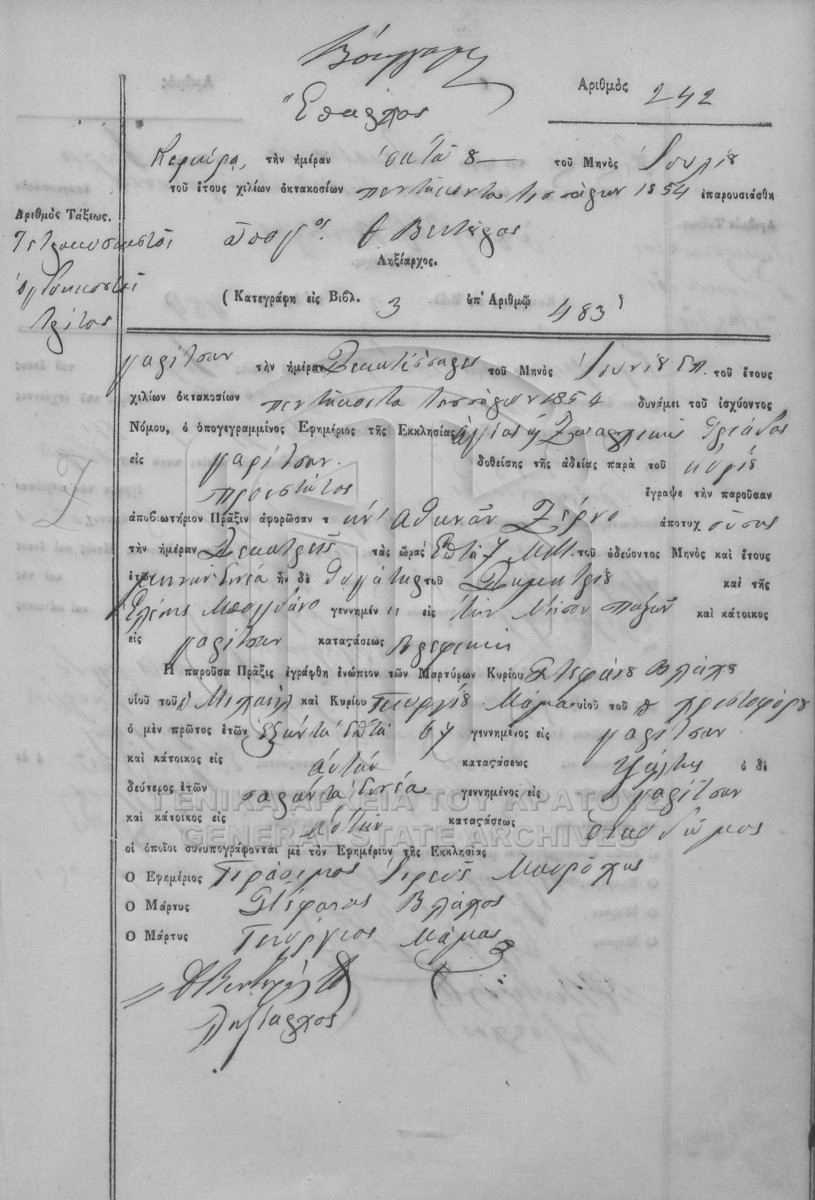 Ἀριθμὸς 242
Ἔπαρχος
Κερκύρα, τὴν ἡμέραν ὀκτὼ 8 τοῦ Μηνὸς Ἰουλίου
τοῦ ἔτους χιλίων ὀκτακοσίων πεντήκοντα τεσσάρων 1854 ἐπαρουσιάσθη
Ἀριθμὸς Τάξεως.
Τετρακοσιοστὸς
ὀγδοηκοστὸς
τρίτος
Ληξίαρχος.
(Κατεγράφη εἰς Βιβλ. 3 ὑπ' Ἀριθμῷ 483)
Γαρίτσαν τὴν ἡμέραν Δεκατέσσαρες τοῦ Μηνὸς Ἰουνίου τοῦ ἔτους
χιλίων ὀκτακοσίων πεντήκοντα τεσσάρων 1854 δυνάμει τοῦ ἰσχύοντος
Νόμου, ὁ ὑπογεγραμμένος Ἐφημέριος τῆς Ἐκκλησίας
εἰς Γαρίτσαν. δοθείσης τῆς ἀδείας παρὰ τοῦ κυρίου
προεστῶτος ἔγραψε τὴν παροῦσαν
ἀποβιωτήριον Πρᾶξιν ἀφορῶσαν τ ὴν Ἀθηνᾶν Ζέρνο ἀποτυχ οῦσης
τὴν ἡμέραν Δεκατρεῖς τὰς ὥρας Ἑπτὰ 7 Μ.Μ. τοῦ ὁδεύοντος Μηνὸς καὶ ἔτους
ἐτῶν ἐννέα ἦν δὲ θυγάτηρ τοῦ Δημητρίου καὶ τῆς
Ἑλένης Μπογδάνο γεννημέν η εἰς τὴν Νῆσον Παξῶν καὶ κάτοικος
εἰς Γαρίτσαν καταςάσεως
Ἡ παροῦσα Πρᾶξις ἐγράφθη ἐνώπιον τῶν Μαρτύρων Κυρίου Στεφάνου Βλάχου
υἱοῦ τοῦ Μιχαὴλ καὶ Κυρίου Γεωργίου Μάμα υἱοῦ τοῦ π Χριστοφόρου
ὁ μὲν πρῶτος ἐτῶν ἑξήντα ἑπτὰ 67 γεννημένος εἰς Γαρίτσαν
καὶ κάτοικος εἰς αὐτὴν καταςάσεως ὁ δὲ
δεύτερος ἐτῶν σαράντα ἐννέα γεννημένος εἰς Γαρίτσαν
καὶ κάτοικος εἰς αὐτὴν καταςάσεως
οἱ ὁποῖοι συνυπογράφονται μὲ τὸν Ἐφημέριον τῆς Ἐκκλησίας
Ὁ Ἐφημέριος Γεράσιμος Ἱερεὺς
Ὁ Μάρτυς Στέφανος Βλάχος
Ὁ Μάρτυς Γεώργιος Μάμας
Ληξίαρχος
ΓΕΝΙΚΑ ΑΡΧΕΙΑ ΤΟΥ ΚΡΑΤΟΥΣ
GENERAL STATE ARCHIVES